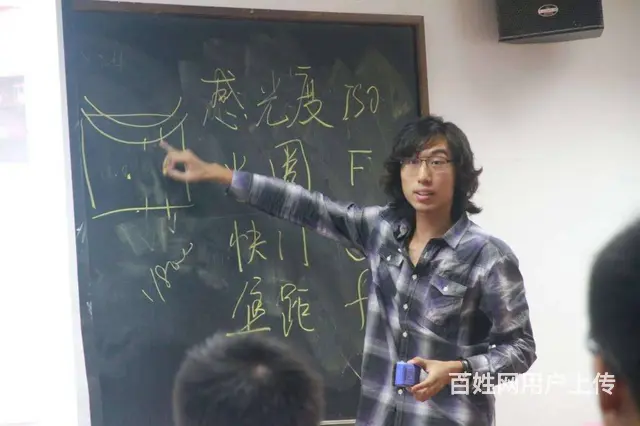 感光度 ISO
圈 F
快门
焦距 f
百姓网用户上传